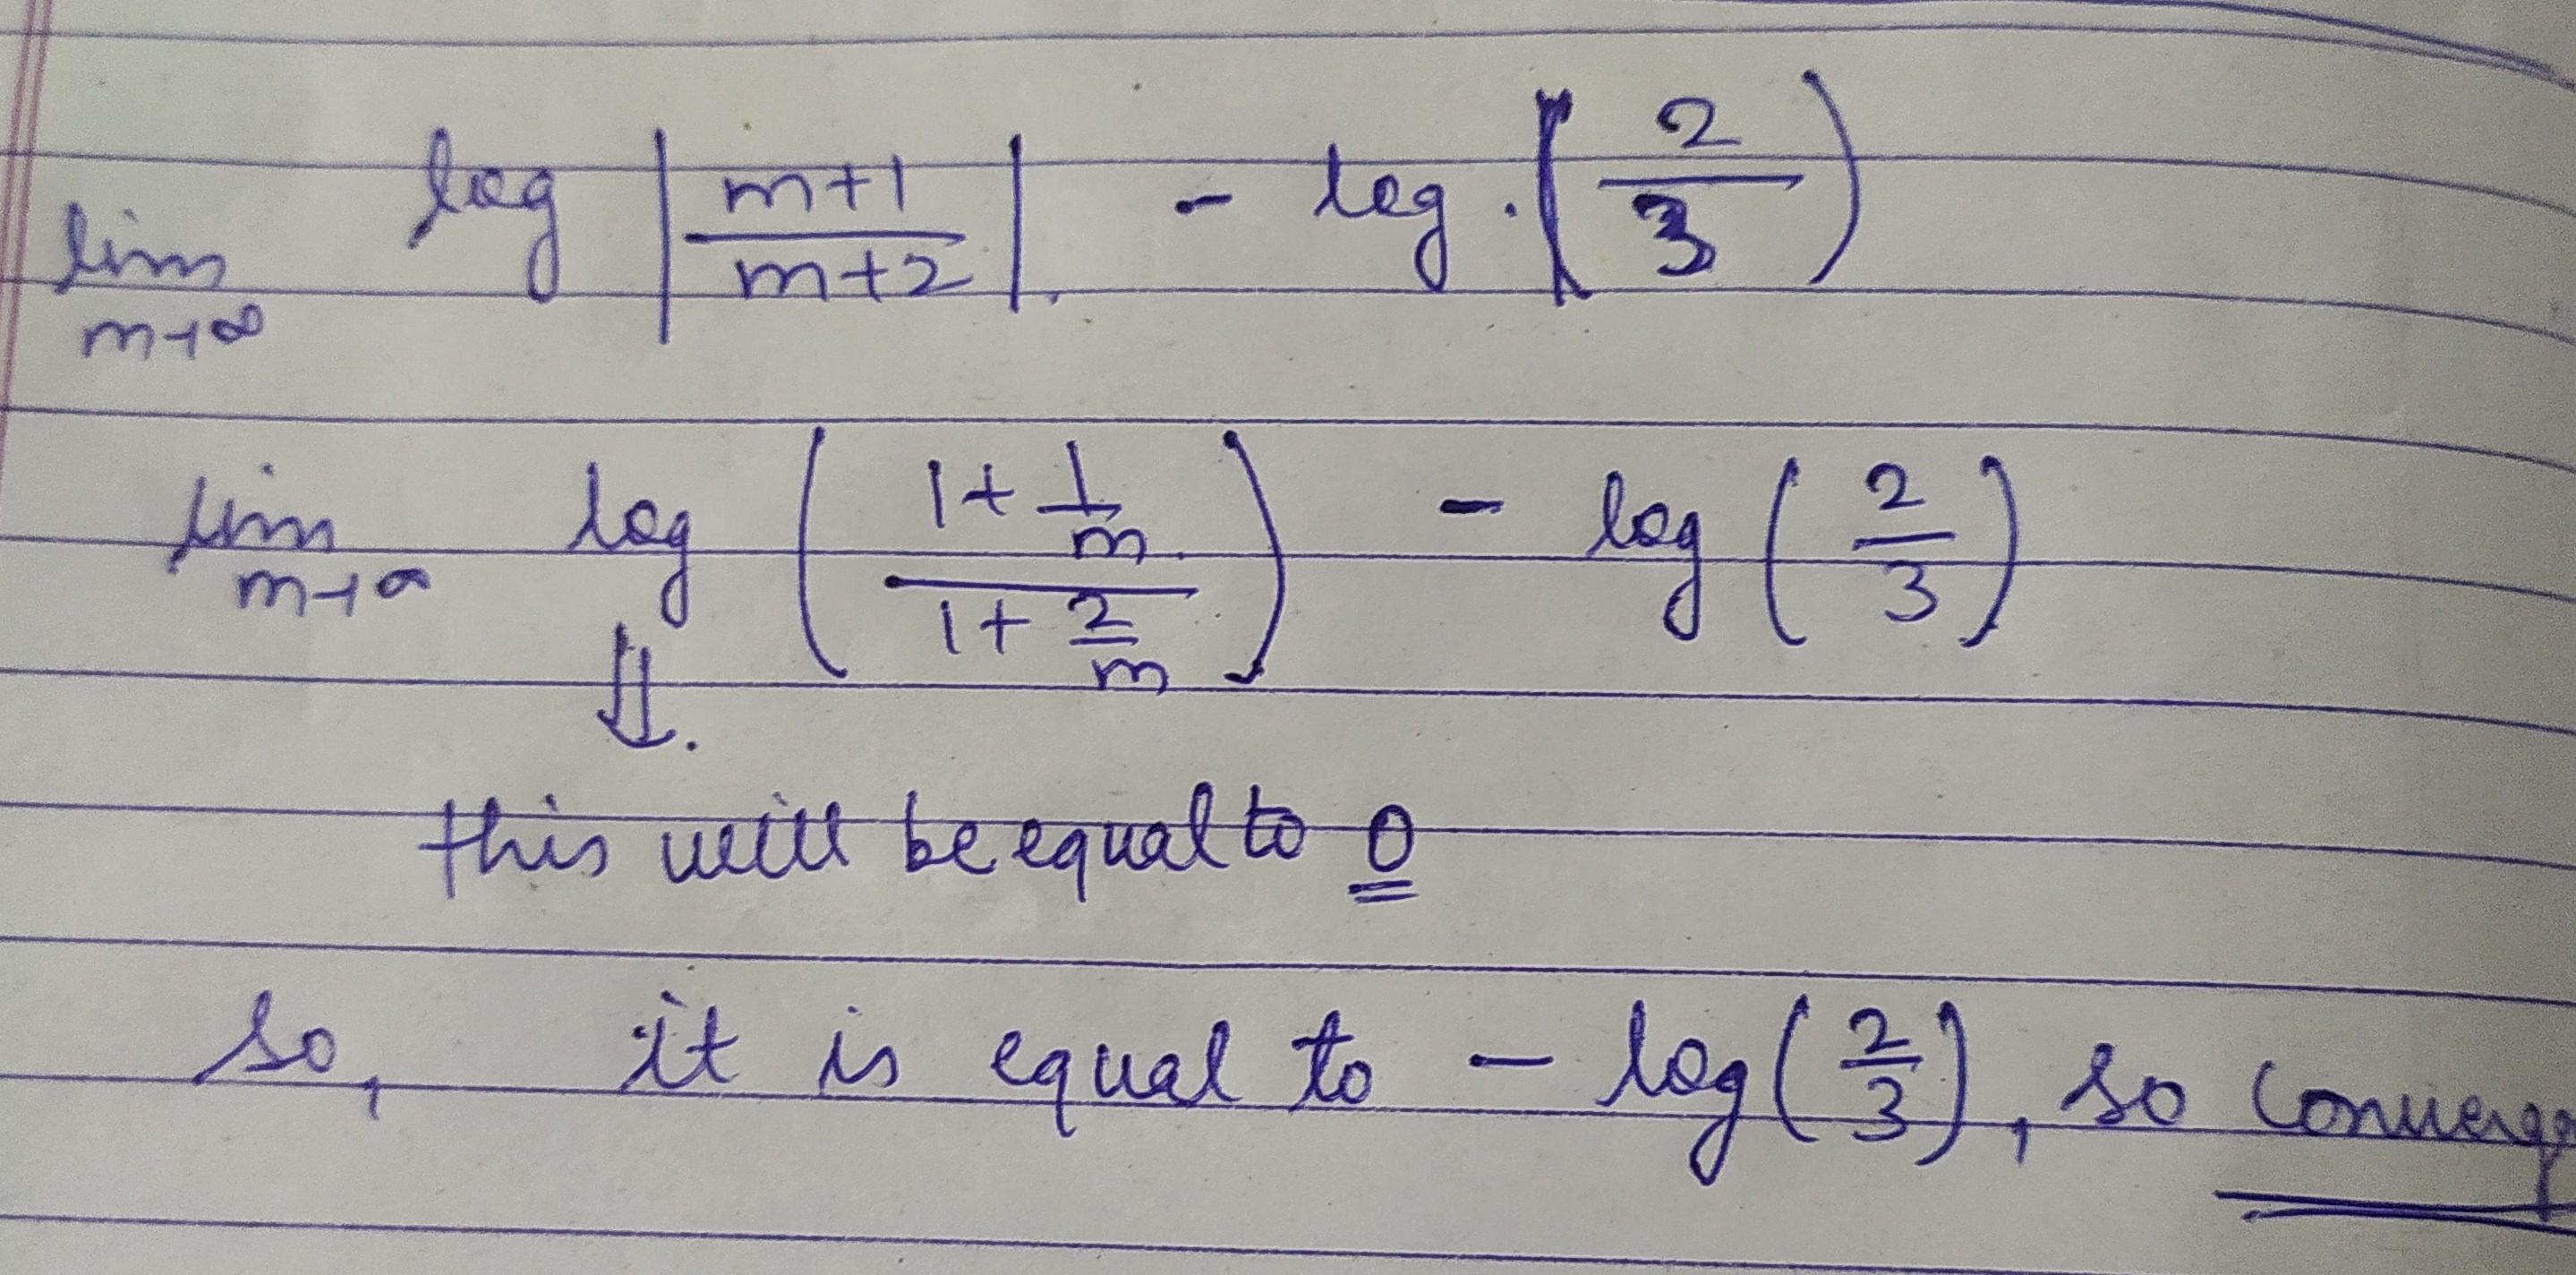 lim m→∞ log |m+1/m+2| - log (2/3)
lim m→∞ log (1+1/m / 1+2/m) - log (2/3)
⇓
this will be equal to 0
so, it is equal to - log(2/3), so